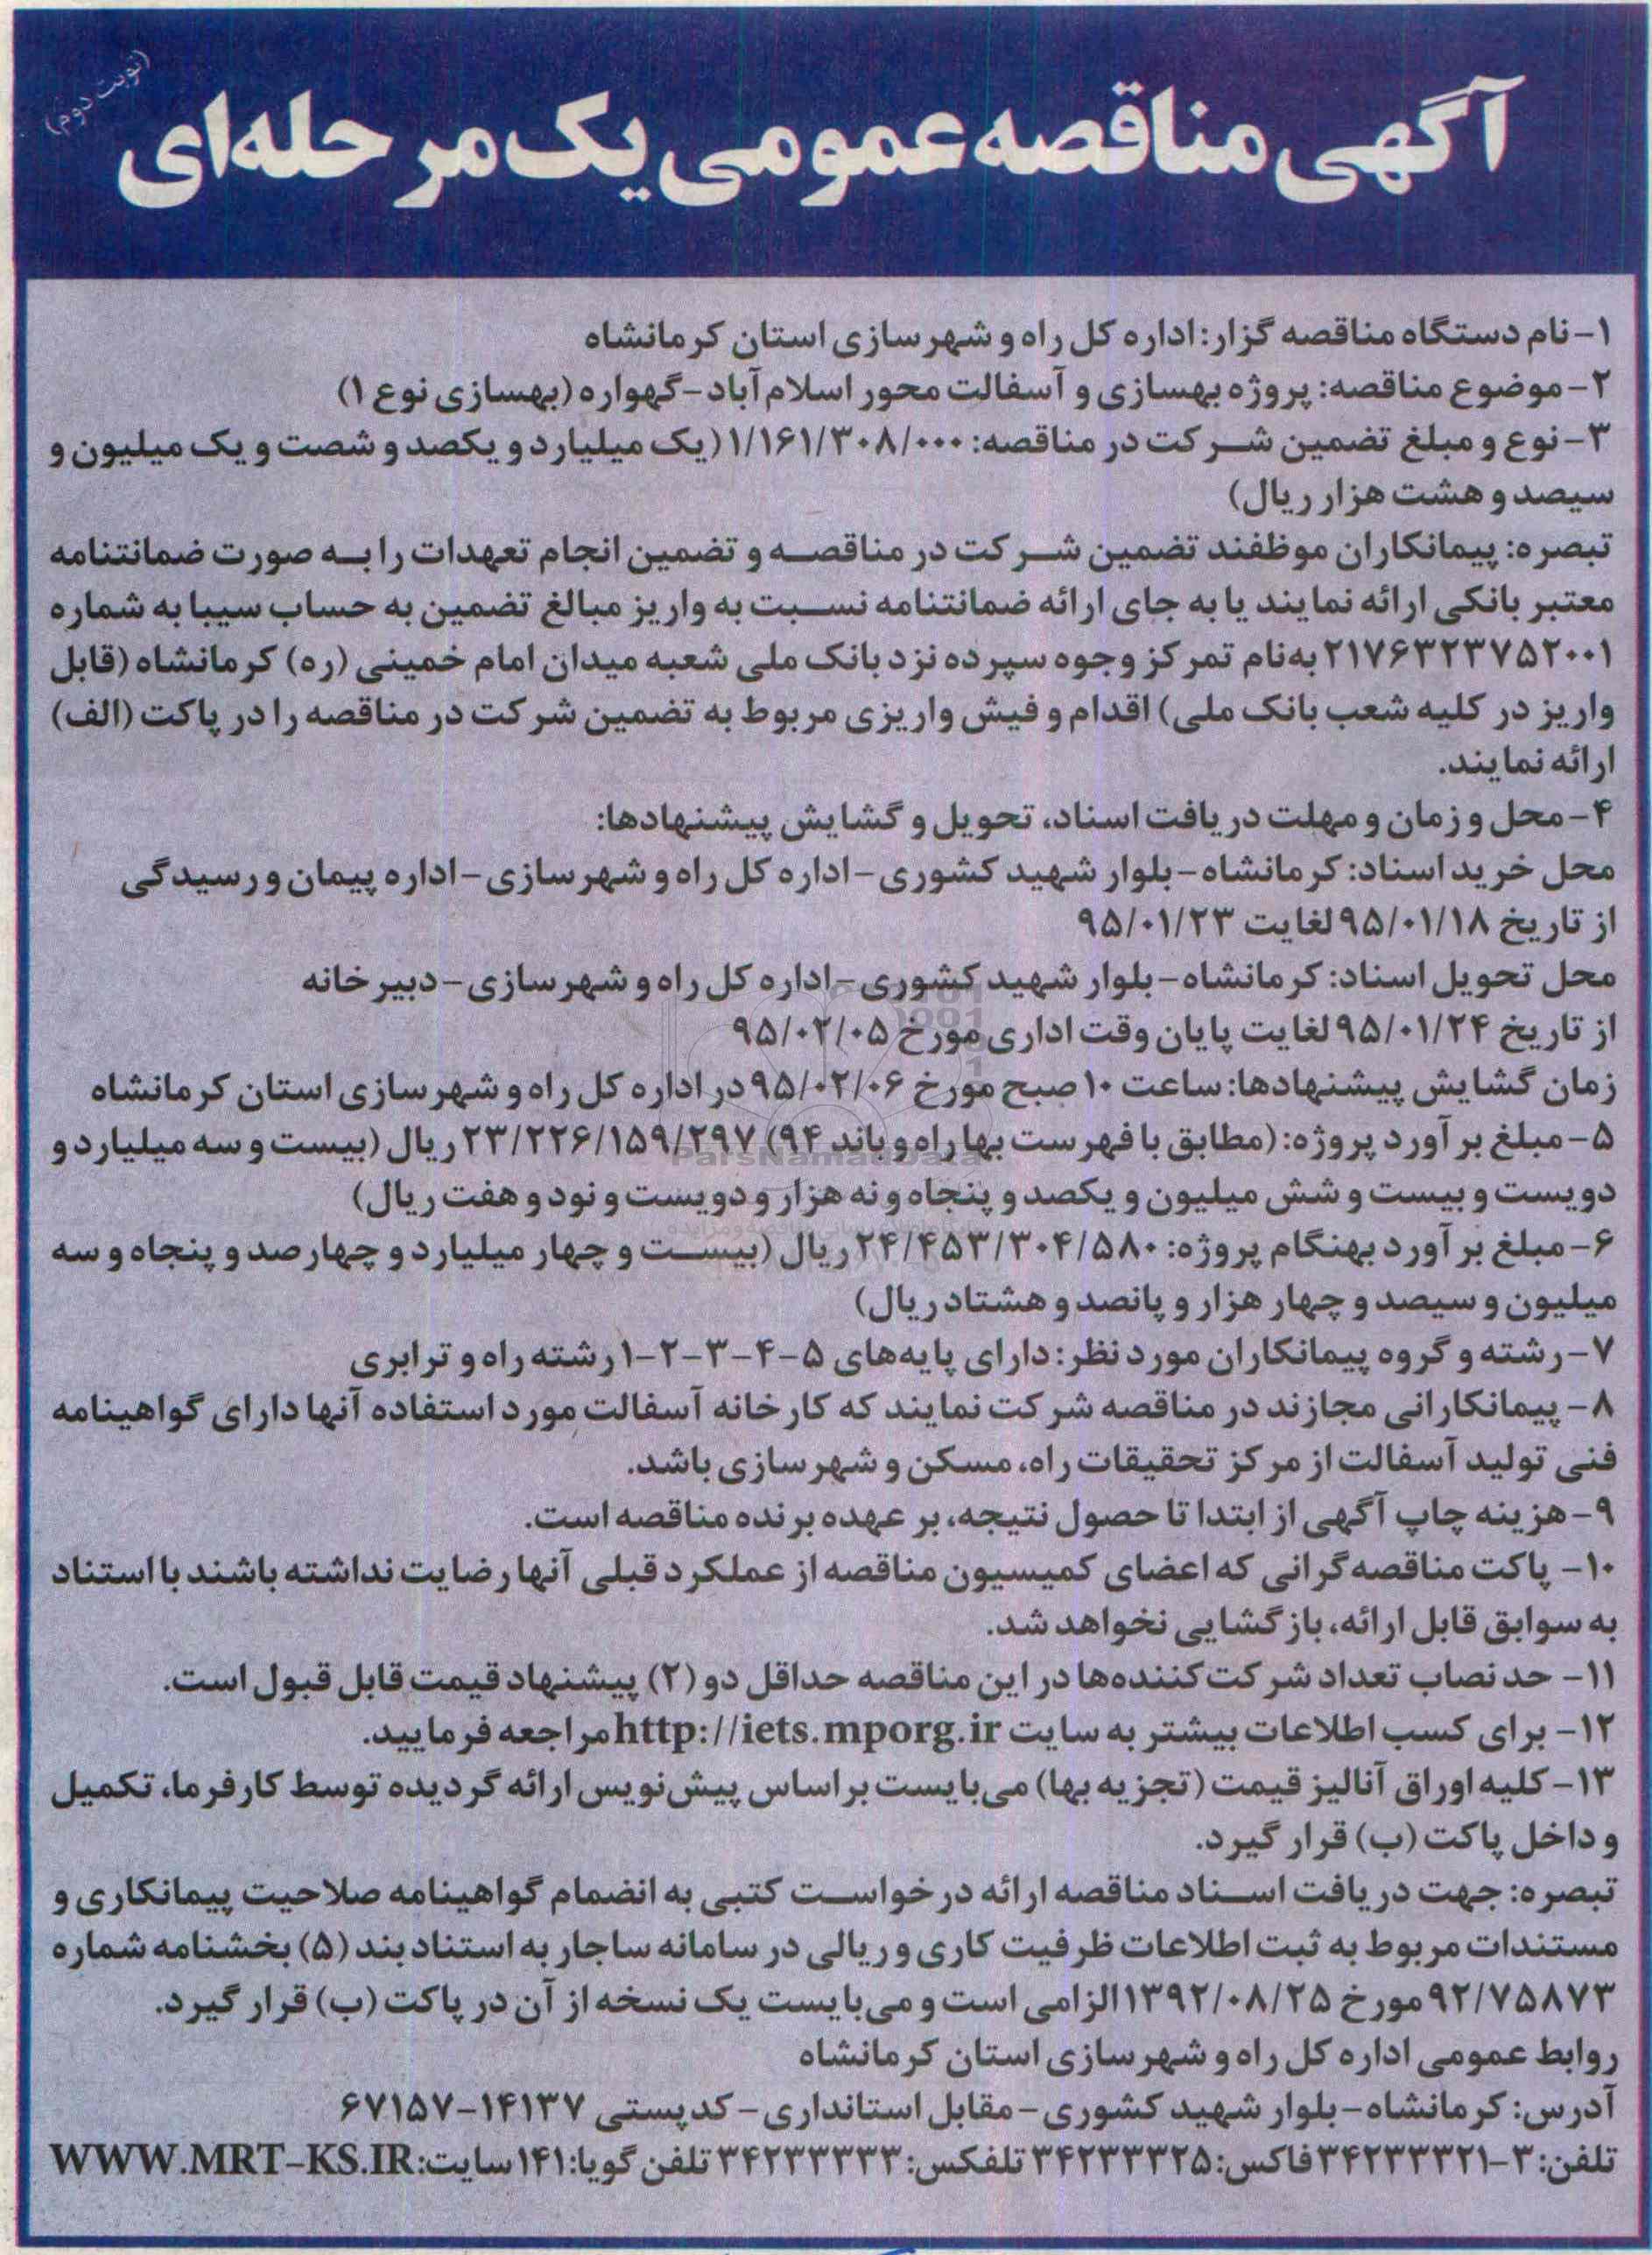 (نوبت دوم)
آگهی مناقصه عمومی یک مرحله‌ای
۱- نام دستگاه مناقصه گزار: اداره کل راه و شهرسازی استان کرمانشاه
۲- موضوع مناقصه: پروژه بهسازی و آسفالت محور اسلام‌آباد - گهواره (بهسازی نوع ۱)
۳- نوع و مبلغ تضمین شرکت در مناقصه: ۱/۱۶۱/۳۰۸/۰۰۰ (یک میلیارد و یکصد و شصت و یک میلیون و
سیصد و هشت هزار ریال)
تبصره: پیمانکاران موظفند تضمین شرکت در مناقصه و تضمین انجام تعهدات را به صورت ضمانتنامه
معتبر بانکی ارائه نمایند یا به جای ارائه ضمانتنامه نسبت به واریز مبالغ تضمین به حساب سیبا به شماره
۲۱۷۶۳۲۳۷۵۲۰۰۱ به‌نام تمرکز وجوه سپرده نزد بانک ملی شعبه میدان امام خمینی (ره) کرمانشاه (قابل
واریز در کلیه شعب بانک ملی) اقدام و فیش واریزی مربوط به تضمین شرکت در مناقصه را در پاکت (الف)
ارائه نمایند.
۴- محل و زمان و مهلت دریافت اسناد، تحویل و گشایش پیشنهادها:
محل خرید اسناد: کرمانشاه - بلوار شهید کشوری - اداره کل راه و شهرسازی - اداره پیمان و رسیدگی
از تاریخ ۹۵/۰۱/۱۸ لغایت ۹۵/۰۱/۲۳
محل تحویل اسناد: کرمانشاه - بلوار شهید کشوری - اداره کل راه و شهرسازی - دبیرخانه
از تاریخ ۹۵/۰۱/۲۴ لغایت پایان وقت اداری مورخ ۹۵/۰۲/۰۵
زمان گشایش پیشنهادها: ساعت ۱۰ صبح مورخ ۹۵/۰۲/۰۶ در اداره کل راه و شهرسازی استان کرمانشاه
۵- مبلغ برآورد پروژه: (مطابق با فهرست بها راه و باند ۹۴) ۲۳/۲۲۶/۱۵۹/۲۹۷ ریال (بیست و سه میلیارد و
ParsNamadData
دویست و بیست و شش میلیون و یکصد و پنجاه و نه هزار و دویست و نود و هفت ریال)
۶- مبلغ برآورد بهنگام پروژه: ۲۴/۴۵۳/۳۰۴/۵۸۰ ریال (بیست و چهار میلیارد و چهارصد و پنجاه و سه
میلیون و سیصد و چهار هزار و پانصد و هشتاد ریال)
۷- رشته و گروه پیمانکاران مورد نظر: دارای پایه‌های ۵-۴-۳-۲-۱ رشته راه و ترابری
۸- پیمانکارانی مجازند در مناقصه شرکت نمایند که کارخانه آسفالت مورد استفاده آنها دارای گواهینامه
فنی تولید آسفالت از مرکز تحقیقات راه، مسکن و شهرسازی باشد.
۹- هزینه چاپ آگهی از ابتدا تا حصول نتیجه، بر عهده برنده مناقصه است.
۱۰- پاکت مناقصه‌گرانی که اعضای کمیسیون مناقصه از عملکرد قبلی آنها رضایت نداشته باشند با استناد
به سوابق قابل ارائه، بازگشایی نخواهد شد.
۱۱- حد نصاب تعداد شرکت‌کننده‌ها در این مناقصه حداقل دو (۲) پیشنهاد قیمت قابل قبول است.
۱۲- برای کسب اطلاعات بیشتر به سایت http://iets.mporg.ir مراجعه فرمایید.
۱۳- کلیه اوراق آنالیز قیمت (تجزیه بها) می‌بایست براساس پیش‌نویس ارائه گردیده توسط کارفرما، تکمیل
و داخل پاکت (ب) قرار گیرد.
تبصره: جهت دریافت اسناد مناقصه ارائه درخواست کتبی به انضمام گواهینامه صلاحیت پیمانکاری و
مستندات مربوط به ثبت اطلاعات ظرفیت کاری و ریالی در سامانه ساجار به استناد بند (۵) بخشنامه شماره
۹۲/۷۵۸۷۳ مورخ ۱۳۹۲/۰۸/۲۵ الزامی است و می‌بایست یک نسخه از آن در پاکت (ب) قرار گیرد.
روابط عمومی اداره کل راه و شهرسازی استان کرمانشاه
آدرس: کرمانشاه - بلوار شهید کشوری - مقابل استانداری - کدپستی ۱۴۱۳۷-۶۷۱۵۷
تلفن: ۳-۳۴۲۳۳۳۲۱ فاکس: ۳۴۲۳۳۳۲۵ تلفکس: ۳۴۲۳۳۳۳۳ تلفن گویا: ۱۴۱ سایت: WWW.MRT-KS.IR